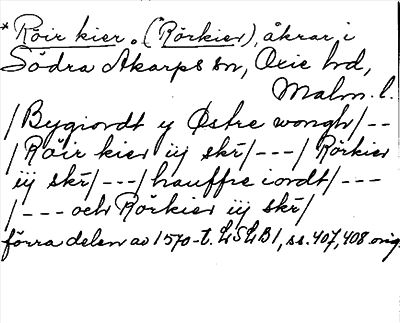 * Röir kier. (Rörkier), åkrar, i
Södra Åkarps sn, Oxie hd,
Malm. l.
/Bygiordt y Østre wongh/--
/Röir kier iij skr/---/Rörkier
iij skr/---/hauffre iordt/---
/---och Rörkier iij skr/
förra delen av 1570-t. LSLB1, ss. 407, 408 orig.